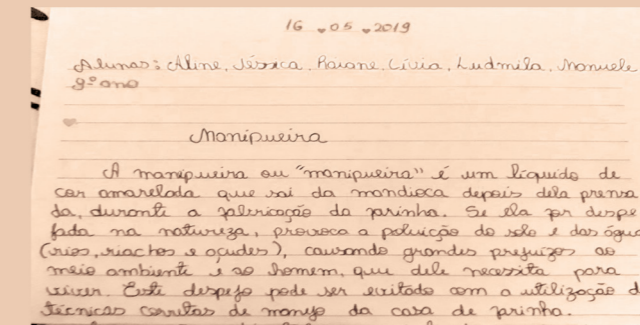 16 05 2019
Alunas: Aline, Jéssica, Raiane, Lívia, Ludmila, Manuele
9º ano
Manipueira
A manipueira ou "manipueira" é um líquido de
cor amarelada que sai da mandioca depois dela prensa
da, durante a fabricação da farinha. Se ela for despe
jada na natureza, provoca a poluição do solo e das água
(rios, riachos e açudes), causando grandes prejuízos ao
meio ambiente e ao homem, que dele necessita para
viver. Este despejo pode ser evitado com a utilização d
técnicas corretas de manejo da casa de farinha.